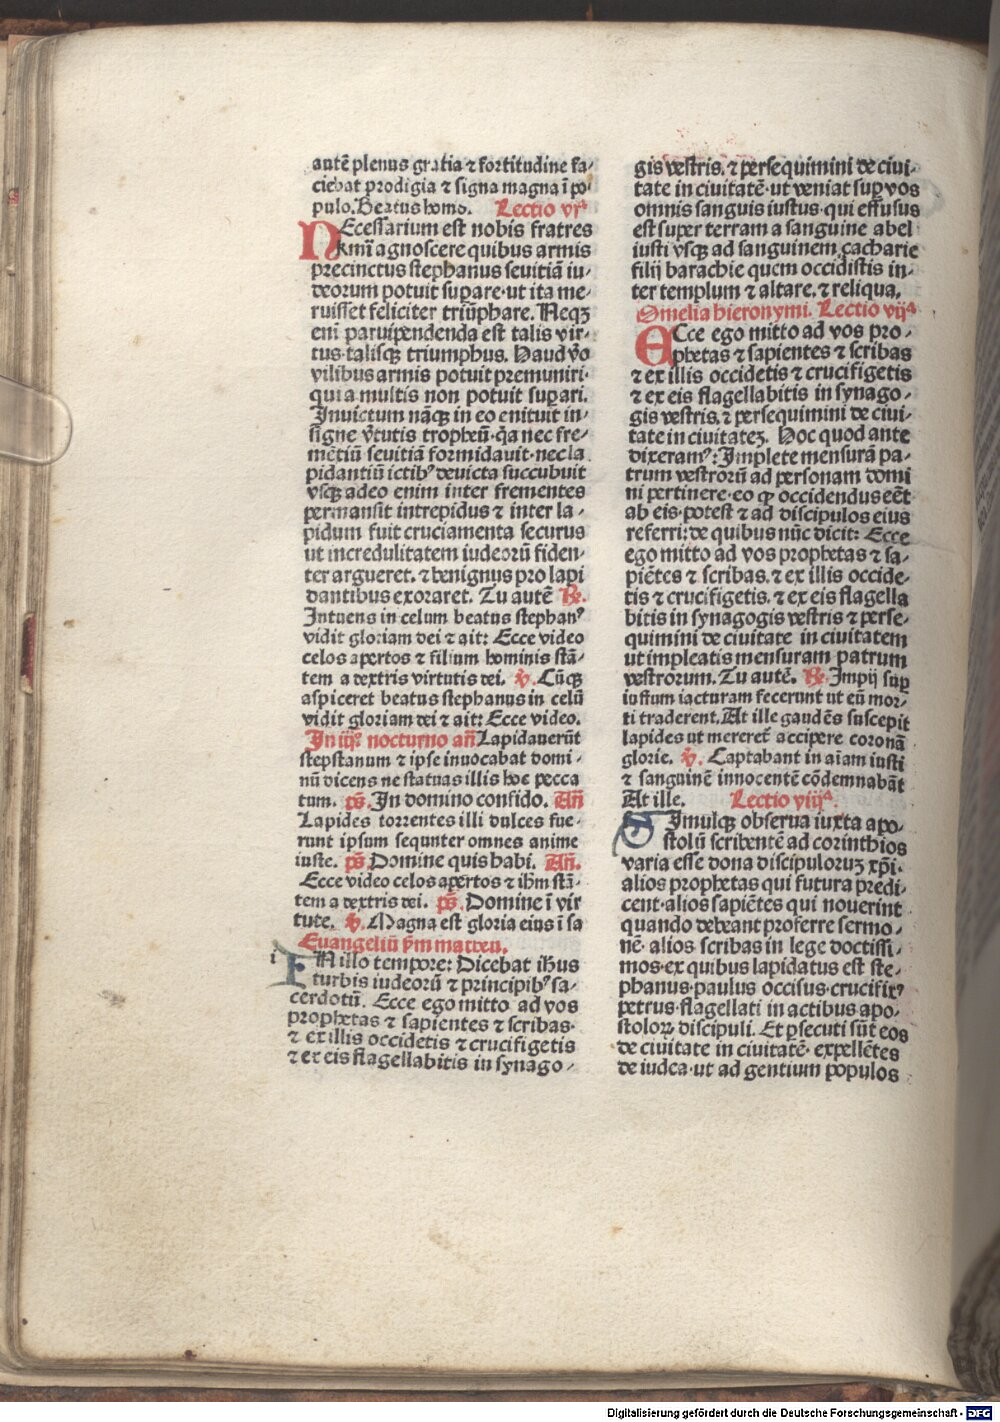 autē plenus gratia ⁊ fortitudine fa⸗
ciebat prodigia ⁊ signa magna ī po⸗
pulo. Beatus homo. Lectio vjª
NEcessarium est nobis fratres
kmī agnoscere quibus armis
precinctus stephanus seuitiā iu⸗
deorum potuit suꝑare·ut ita me⸗
ruisset feliciter triūphare. Neqꝫ
eni̅ paruipendenda est talis vir⸗
tus·talisqꝫ triumphus. Haud v̓o
vilibus armis potuit premuniri·
qui a multis non potuit suꝑari.
Inuictum nāqꝫ in eo enituit in⸗
signe v̓tutis tropheū·q̄a nec fre⸗
mētiū seuitiā formidauit·nec la
pidantiū ictibꝰ deuicta succubuit
vsqꝫ adeo enim inter frementes
permansit intrepidus ⁊ inter la⸗
pidum fuit cruciamenta securus
ut incredulitatem iudeorū fiden⸗
ter argueret. ⁊ benignus pro lapi
dantibus exoraret. Tu autē ℞.
Intuens in celum beatus stephanꝰ
vidit gloriam dei ⁊ ait: Ecce video
celos apertos ⁊ filium hominis stā⸗
tem a dextris virtutis dei. ℣. Cūqꝫ
aspiceret beatus stephanus in celū
vidit gloriam dei ⁊ ait: Ecce video.
In iijº. nocturno an̄ Lapidauerūt
stepstanum ⁊ ipse inuocabat domi⸗
nū dicens ne statuas illis hoc pecca
tum. ps̄. In domino confido. An̄
Lapides torrentes illi dulces fue⸗
runt ipsum sequnter omnes anime
iuste. ps̄. Domine quis habi. An̄.
Ecce video celos apertos ⁊ ih̄m stā⸗
tem a dextris dei. ps̄. Domine ī vir
tute. ℣. Magna est gloria eius ī sa
Euangeliū ẜm matteu.
i IN illo tempore: Dicebat ih̄us
turbis iudeorū ⁊ principibꝰ sa⸗
cerdotū. Ecce ego mitto ad vos
prophetas ⁊ sapientes ⁊ scribas·
⁊ ex illis occidetis ⁊ crucifigetis
⁊ ex eis flagellabitis in synago⸗
gis vestris. ⁊ persequimini de ciui⸗
tate in ciuitatē·ut veniat suꝑ vos
omnis sanguis iustus·qui effusus
est super terram a sanguine abel
iusti vsqꝫ ad sanguinem zacharie
filij barachie quem occidistis in⸗
ter templum ⁊ altare. ⁊ reliqua.
Omelia hieronymi. Lectio vijª
ECce ego mitto ad vos pro⸗
phetas ⁊ sapientes ⁊ scribas
⁊ ex illis occidetis ⁊ crucifigetis
⁊ ex eis flagellabitis in synago⸗
gis vestris. ⁊ persequimini de ciui⸗
tate in ciuitateꝫ. Hoc quod ante
dixeramꝰ: Implete mensurā pa⸗
trum vestrorū ad personam domi
ni pertinere·eo ꝙ occidendus eēt
ab eis·potest ⁊ ad discipulos eius
referri: de quibus nūc dicit: Ecce
ego mitto ad vos prophetas ⁊ sa⸗
piētes ⁊ scribas. ⁊ ex illis occide⸗
tis ⁊ crucifigetis. ⁊ ex eis flagella
bitis in synagogis vestris ⁊ perse⸗
quimini de ciuitate in ciuitatem
ut impleatis mensuram patrum
vestrorum. Tu autē. ℞. Impij suꝑ
iustum iacturam fecerunt ut eū mor⸗
ti traderent. At ille gaudēs suscepit
lapides ut mereret̄ accipere coronā
glorie. ℣. Captabant in aīam iusti
⁊ sanguinē innocentē cōdemnabāt
At ille. Lectio viijª.
SImulqꝫ obserua iuxta apo⸗
stolū scribentē ad corinthios
varia esse dona discipuloruꝫ xp̄i·
alios prophetas qui futura predi⸗
cent·alios sapiētes qui nouerint
quando debeant proferre sermo⸗
nē· alios scribas in lege doctissi⸗
mos·ex quibus lapidatus est ste⸗
phanus·paulus occisus·crucifixꝰ
petrus·flagellati in actibus apo⸗
stoloꝝ discipuli. Et ꝑsecuti sūt eos
de ciuitate in ciuitatē· expellētes
de iudea·ut ad gentium populos
Digitalisierung gefördert durch die Deutsche Forschungsgemeinschaft - DFG